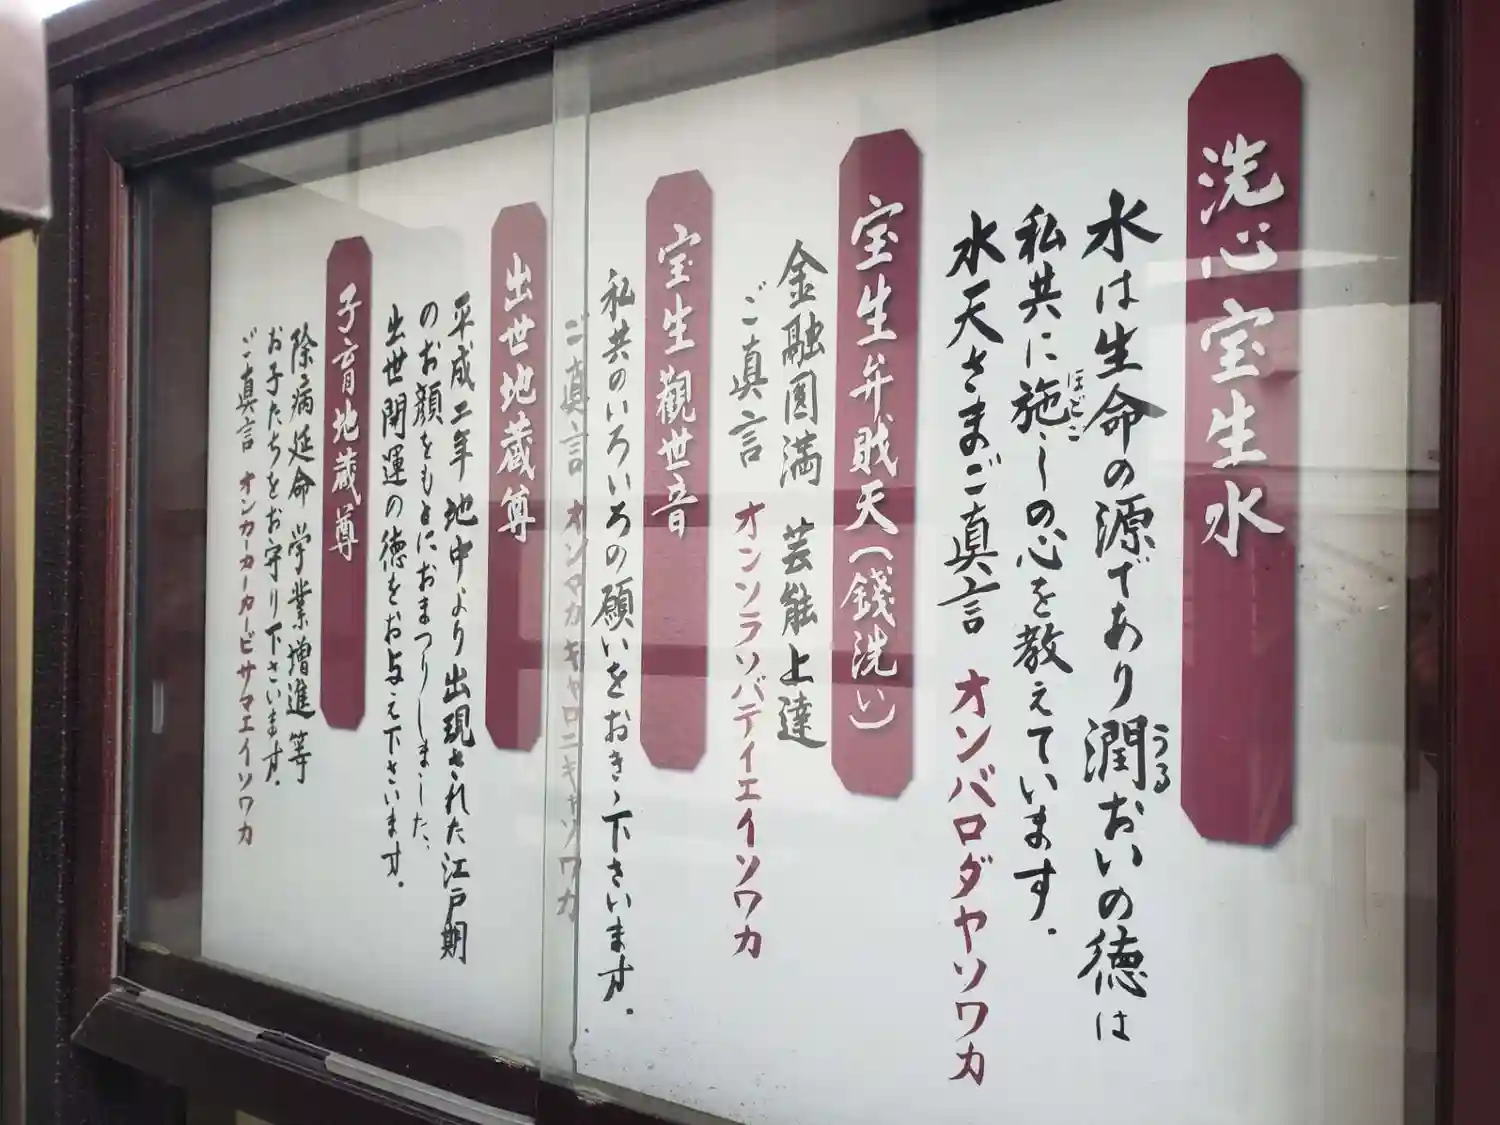 洗心宝生水
水は生命の源であり潤おいの徳は
うる
私共に施しの心を教えています.
ほどこ
水天さまご真言 オンバロダヤソワカ
宝生弁賎天(銭洗い)
金融円満 芸能上達
ご真言 オンソラソバテイエイソワカ
宝生觀世音
私共のいろいろの願いをおきゝ下さいます.
ご真言 オンマカキャロニキャソワカ
出世地蔵尊
平成二年 地中より出現された江戸期
のお顔をもとにおまつりしました、
出世開運の徳をお与え下さいます.
子育地蔵尊
除病延命 学業増進等
お子たちをお守り下さいます.
ご真言 オンカーカーカービサマエイソワカ